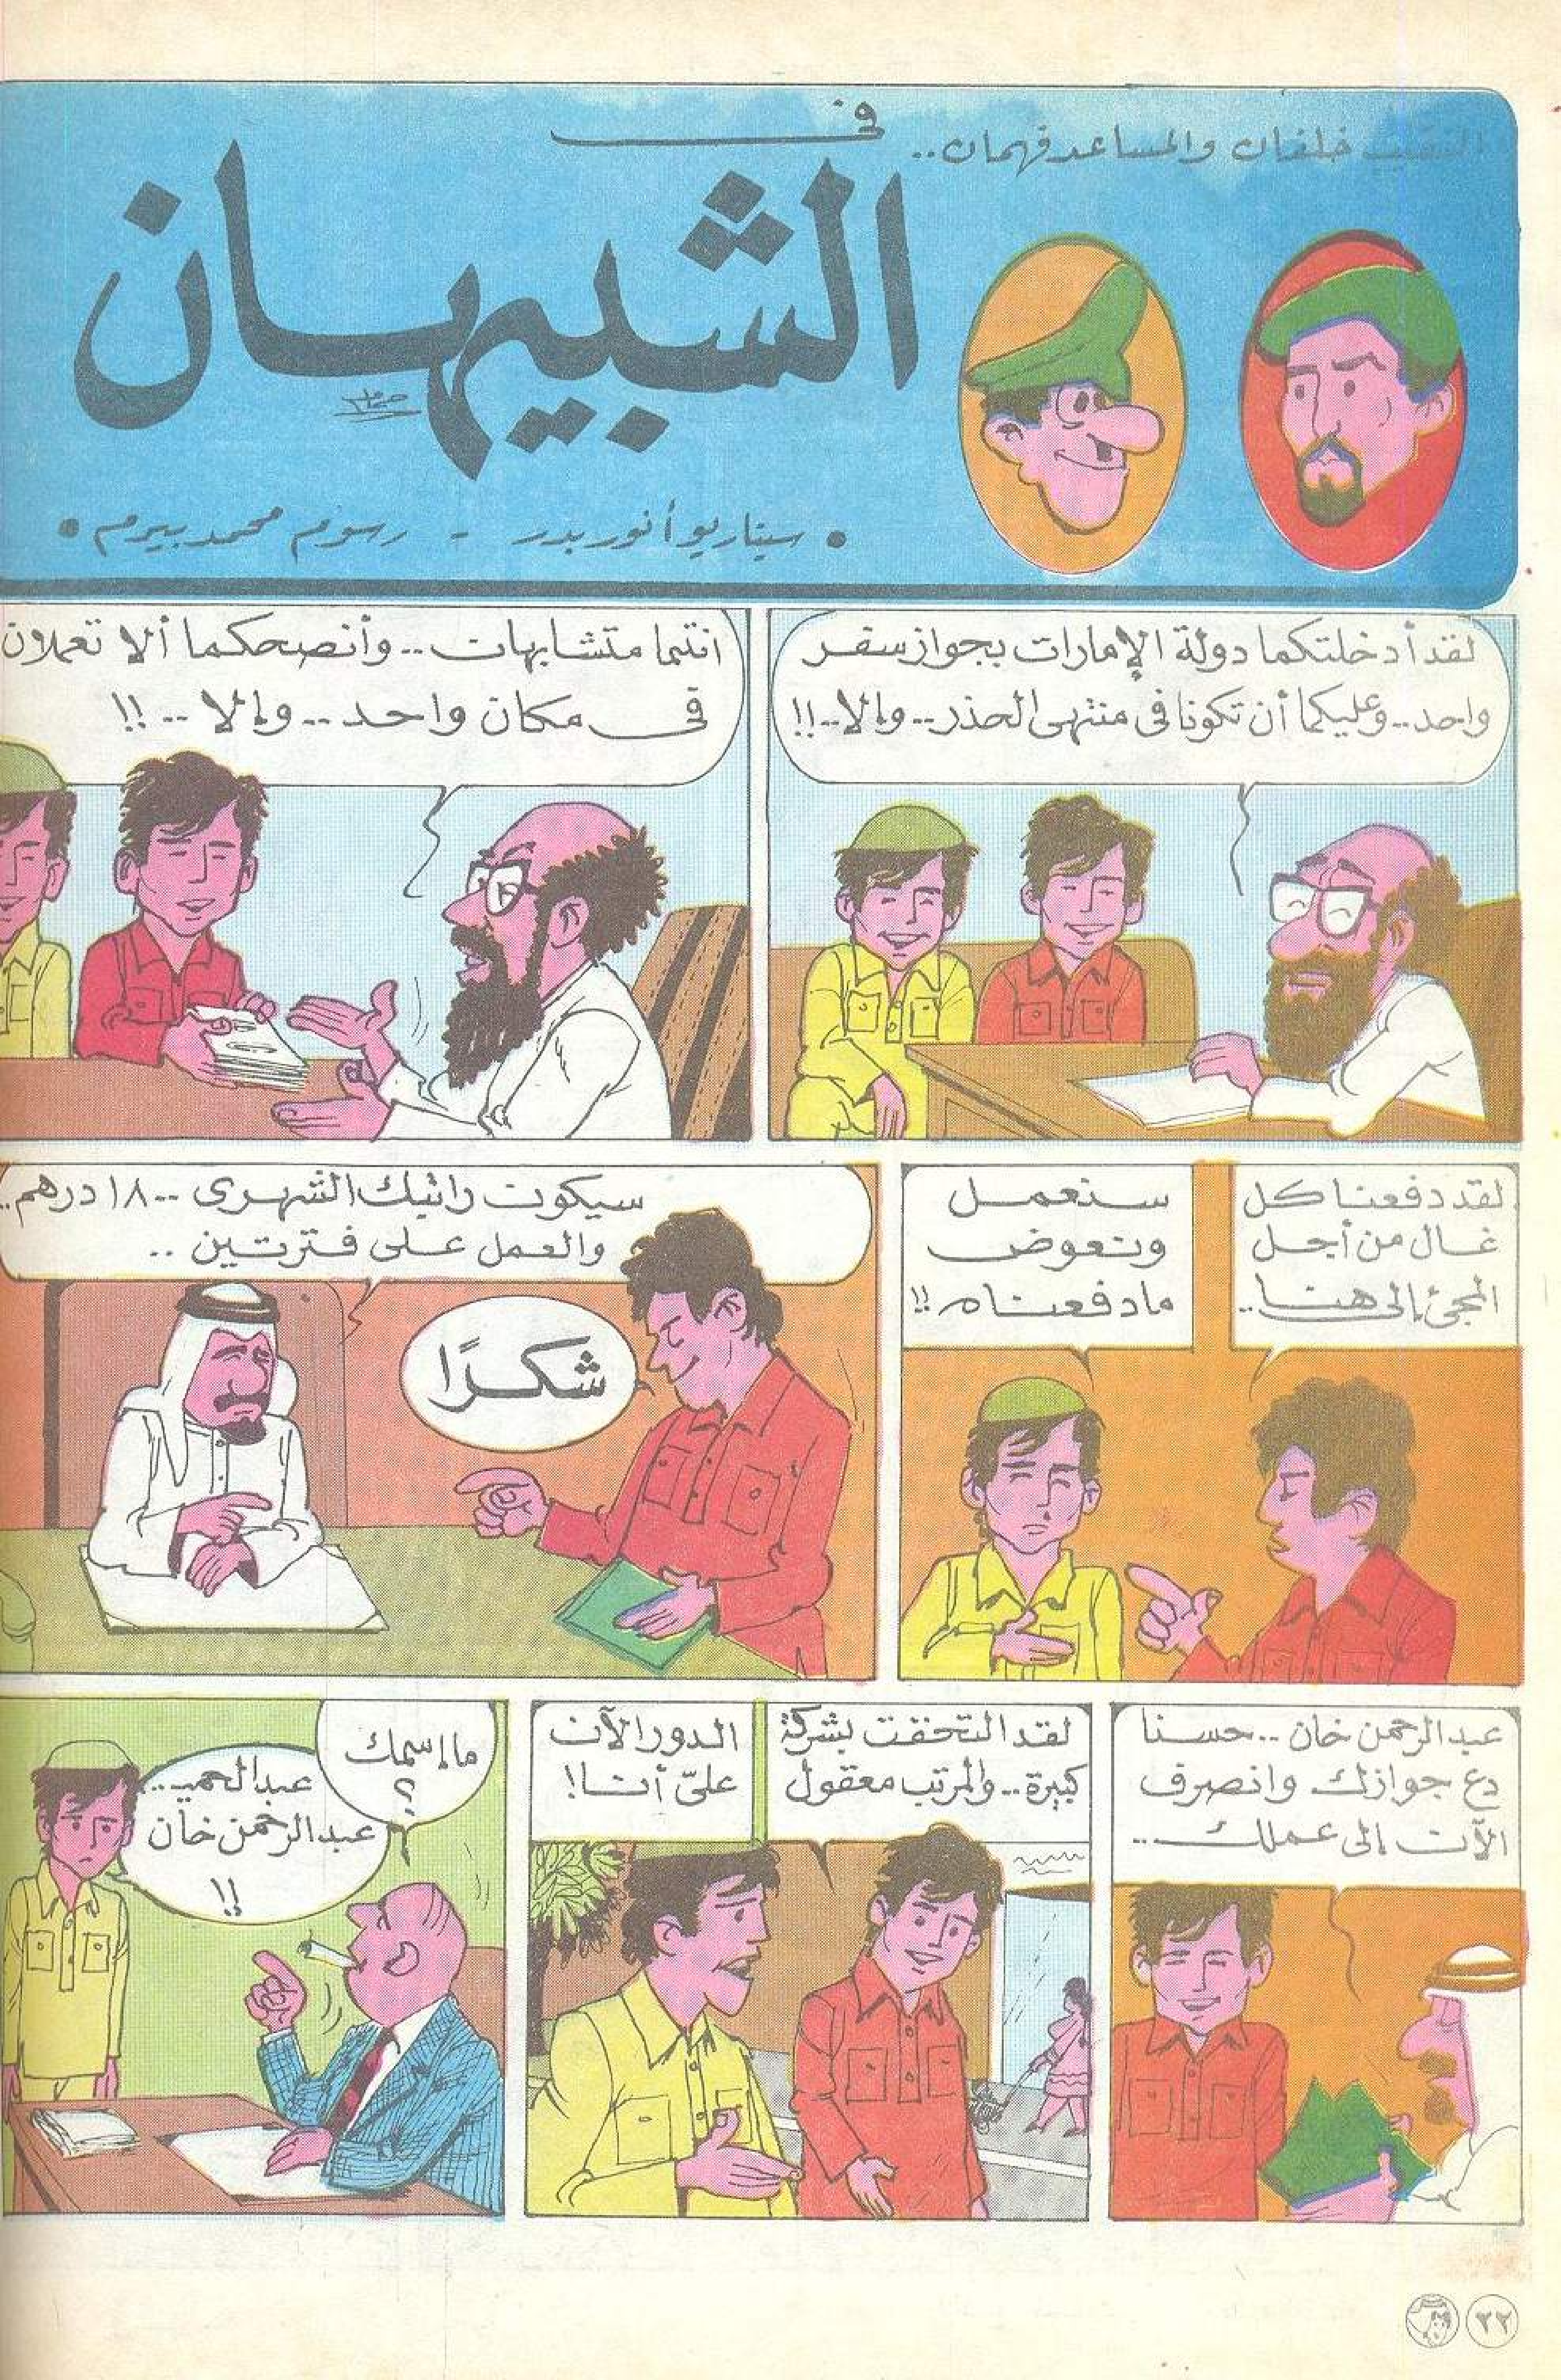 النقيب خلفان والمساعد فهمان..
في
الشبيهان
• سيناريو أنور بدر - رسوم محمد بيرم •
لقد أدخلتكما دولة الإمارات بجواز سفر
واحد.. وعليكما أن تكونا في منتهى الحذر.. وإلا..!!
انتما متشابهان.. وأنصحكما ألا تعملان
في مكان واحد.. وإلا..!!
لقد دفعنا كل
غال من أجل
المجئ إلى هنا..
سنعمل
ونعوض
ما دفعناه!!
سيكون راتبك الشهرى ١٨٠٠ درهم..
والعمل على فترتين..
شكرًا
عبد الرحمن خان.. حسنا
دع جوازك وانصرف
الآن إلى عملك...
لقد التحقت بشركة
كبيرة.. والمرتب معقول
الدور الآن
علىّ أنا!
ما إسمك
؟
عبد الحميـ..
عبد الرحمن خان
!!
٢٢